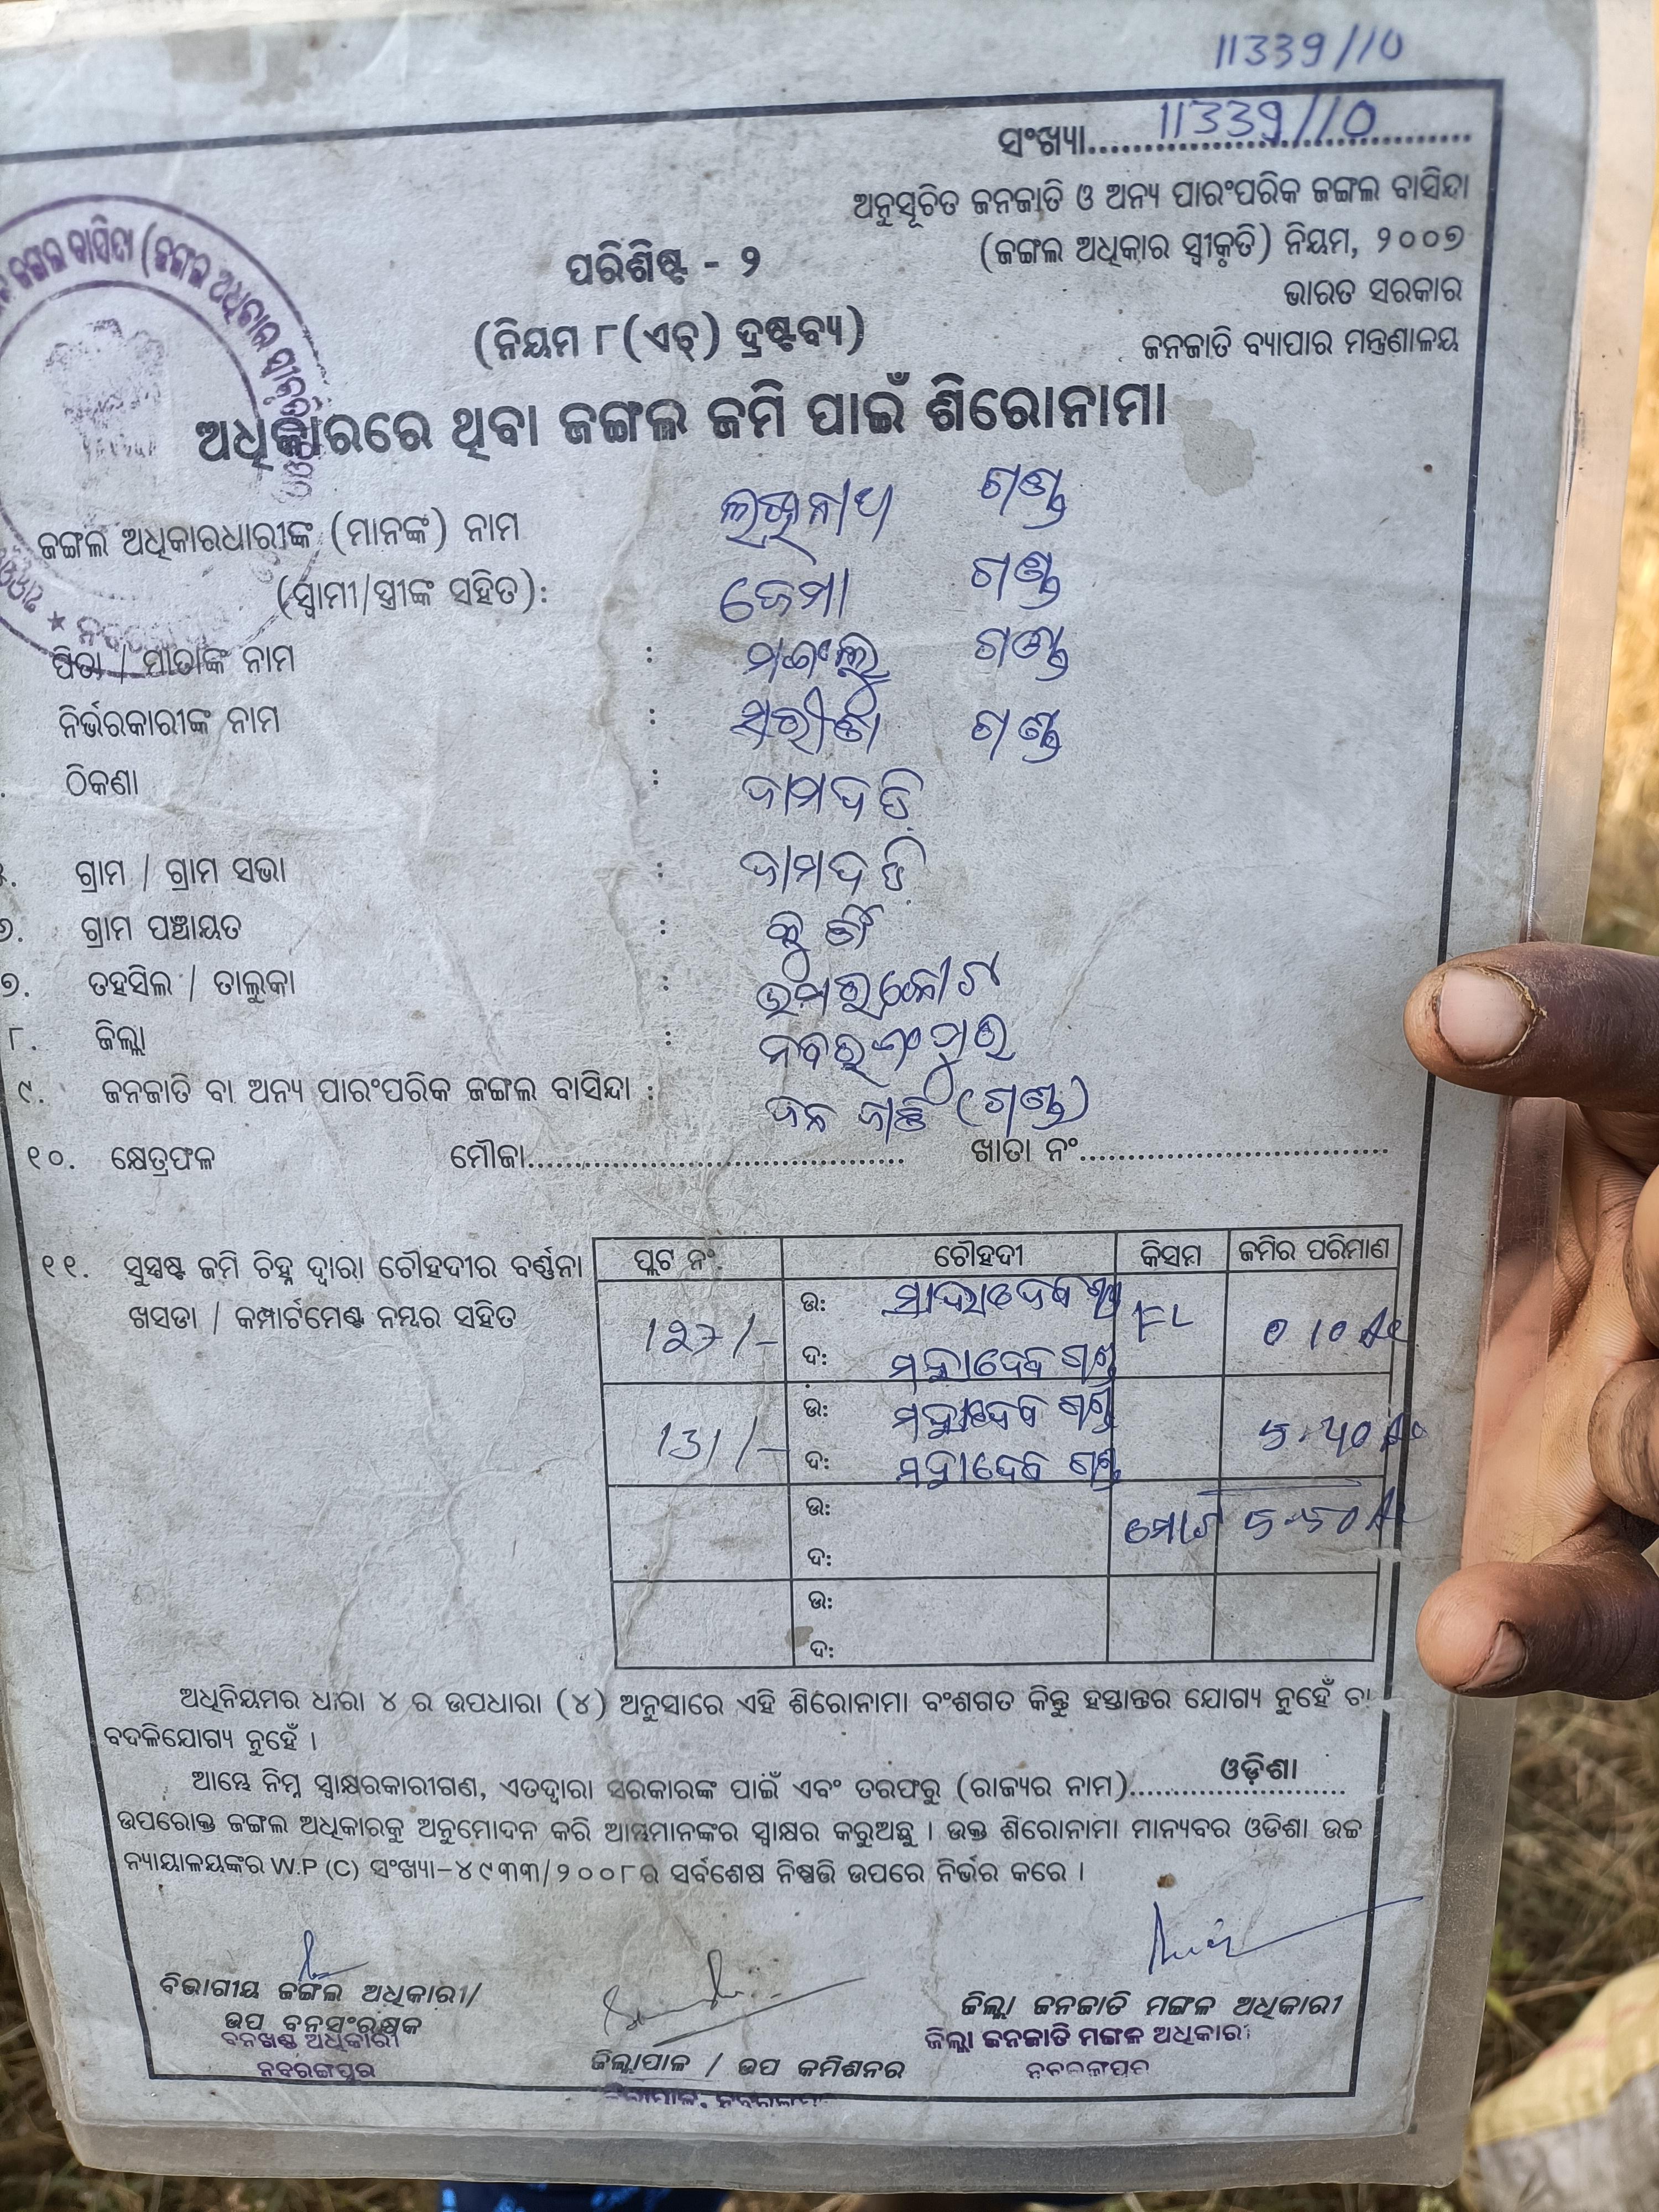 11339/10
ସଂଖ୍ୟା....11339/10....
ଅନୁସୂଚିତ ଜନଜାତି ଓ ଅନ୍ୟ ପାରଂପରିକ ଜଙ୍ଗଲ ବାସିନ୍ଦା
(ଜଙ୍ଗଲ ଅଧିକାର ସ୍ୱୀକୃତି) ନିୟମ, ୨୦୦୭
ଭାରତ ସରକାର
ଜନଜାତି ବ୍ୟାପାର ମନ୍ତ୍ରଣାଳୟ
ପରିଶିଷ୍ଟ - ୨
(ନିୟମ ୮(ଏଚ୍) ଦ୍ରଷ୍ଟବ୍ୟ)
ଜଙ୍ଗଲ ବାସିନ୍ଦା (ଜଙ୍ଗଲ ଅଧିକାର
ଅଧିକାରରେ ଥିବା ଜଙ୍ଗଲ ଜମି ପାଇଁ ଶିରୋନାମା
ଜଙ୍ଗଲ ଅଧିକାରଧାରୀଙ୍କ (ମାନଙ୍କ) ନାମ ଗଣ୍ଡ
(ସ୍ୱାମୀ/ସ୍ତ୍ରୀଙ୍କ ସହିତ): ଜେମା ଗଣ୍ଡ
ପିତା / ମାତାଙ୍କ ନାମ : ଗଣ୍ଡ
ନିର୍ଭରକାରୀଙ୍କ ନାମ : ଗଣ୍ଡ
ଠିକଣା : ଜାମଦଡି
୫. ଗ୍ରାମ / ଗ୍ରାମ ସଭା : ଜାମଦଡି
୬. ଗ୍ରାମ ପଞ୍ଚାୟତ :
୭. ତହସିଲ / ତାଲୁକା : ଉମରକୋଟ
୮. ଜିଲ୍ଲା : ନବରଂଗପୁର
୯. ଜନଜାତି ବା ଅନ୍ୟ ପାରଂପରିକ ଜଙ୍ଗଲ ବାସିନ୍ଦା : ଜନ ଜାତି (ଗଣ୍ଡ)
୧୦. କ୍ଷେତ୍ରଫଳ ମୌଜା.... ଖାତା ନଂ....
୧୧. ସୁସ୍ପଷ୍ଟ ଜମି ଚିହ୍ନ ଦ୍ୱାରା ଚୌହଦୀର ବର୍ଣ୍ଣନା
ଖସଡା / କମ୍ପାର୍ଟମେଣ୍ଟ ନମ୍ବର ସହିତ
ପ୍ଲଟ ନଂ ଚୌହଦୀ କିସମ ଜମିର ପରିମାଣ
127/- ଉ: FL 0 10 Ac
ଦ: ମହାଦେବ ଗଣ୍ଡ
131/- ଉ: ମହାଦେବ ଗଣ୍ଡ 5-40 Ac
ଦ: ମହାଦେବ ଗଣ୍ଡ
ଉ: ମୋଟ 5-50 Ac
ଦ:
ଉ:
ଦ:
ଅଧିନିୟମର ଧାରା ୪ ର ଉପଧାରା (୪) ଅନୁସାରେ ଏହି ଶିରୋନାମା ବଂଶଗତ କିନ୍ତୁ ହସ୍ତାନ୍ତର ଯୋଗ୍ୟ ନୁହେଁ ବା
ବଦଳିଯୋଗ୍ୟ ନୁହେଁ ।
ଆମ୍ଭେ ନିମ୍ନ ସ୍ୱାକ୍ଷରକାରୀଗଣ, ଏତଦ୍ୱାରା ସରକାରଙ୍କ ପାଇଁ ଏବଂ ତରଫରୁ (ରାଜ୍ୟର ନାମ)....ଓଡ଼ିଶା....
ଉପରୋକ୍ତ ଜଙ୍ଗଲ ଅଧିକାରକୁ ଅନୁମୋଦନ କରି ଆମ୍ଭମାନଙ୍କର ସ୍ୱାକ୍ଷର କରୁଅଛୁ । ଉକ୍ତ ଶିରୋନାମା ମାନ୍ୟବର ଓଡିଶା ଉଚ୍ଚ
ନ୍ୟାୟାଳୟଙ୍କର W.P (C) ସଂଖ୍ୟା-୪୯୩୩/୨୦୦୮ର ସର୍ବଶେଷ ନିଷ୍ପତ୍ତି ଉପରେ ନିର୍ଭର କରେ ।
ବିଭାଗୀୟ ଜଙ୍ଗଲ ଅଧିକାରୀ/
ଉପ ବନସଂରକ୍ଷକ
ବନଖଣ୍ଡ ଅଧିକାରୀ
ନବରଙ୍ଗପୁର
ଜିଲ୍ଲାପାଳ / ଉପ କମିଶନର
ଜିଲ୍ଲା ଜନଜାତି ମଙ୍ଗଳ ଅଧିକାରୀ
ଜିଲ୍ଲା ଜନଜାତି ମଙ୍ଗଳ ଅଧିକାରୀ
ନବରଙ୍ଗପୁର